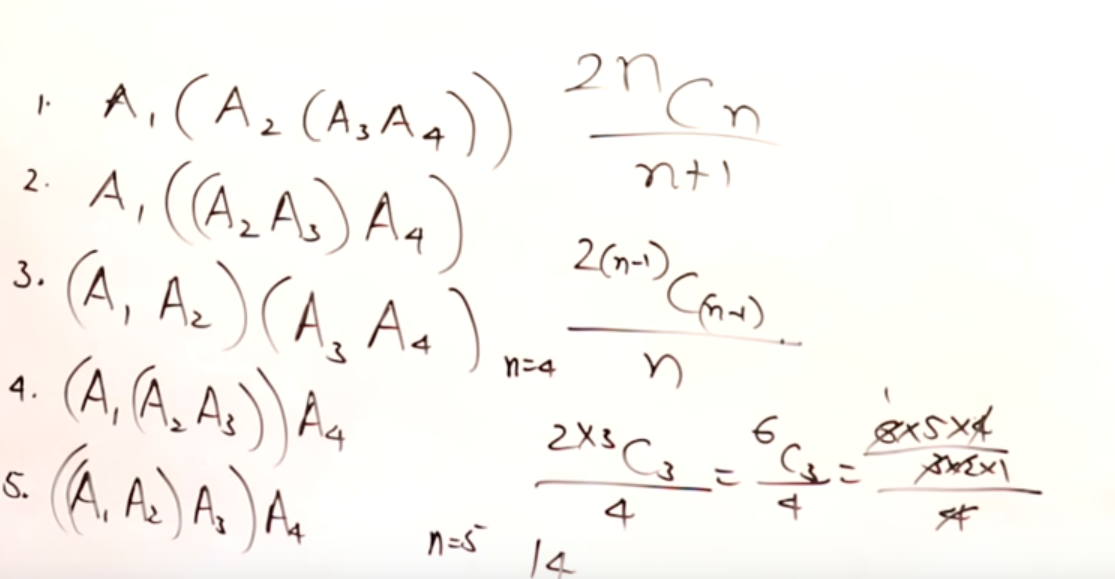 1. A₁(A₂(A₃A₄))
2. A₁((A₂A₃)A₄)
3. (A₁ A₂)(A₃ A₄)
4. (A₁(A₂A₃))A₄
5. ((A₁A₂)A₃)A₄
2nCn
n+1
2(n-1)C(n-1)
n
n=4
2×3C₃/4 = 6C₃/4 = 6×5×4/3×2×1/4
1
n=5 14